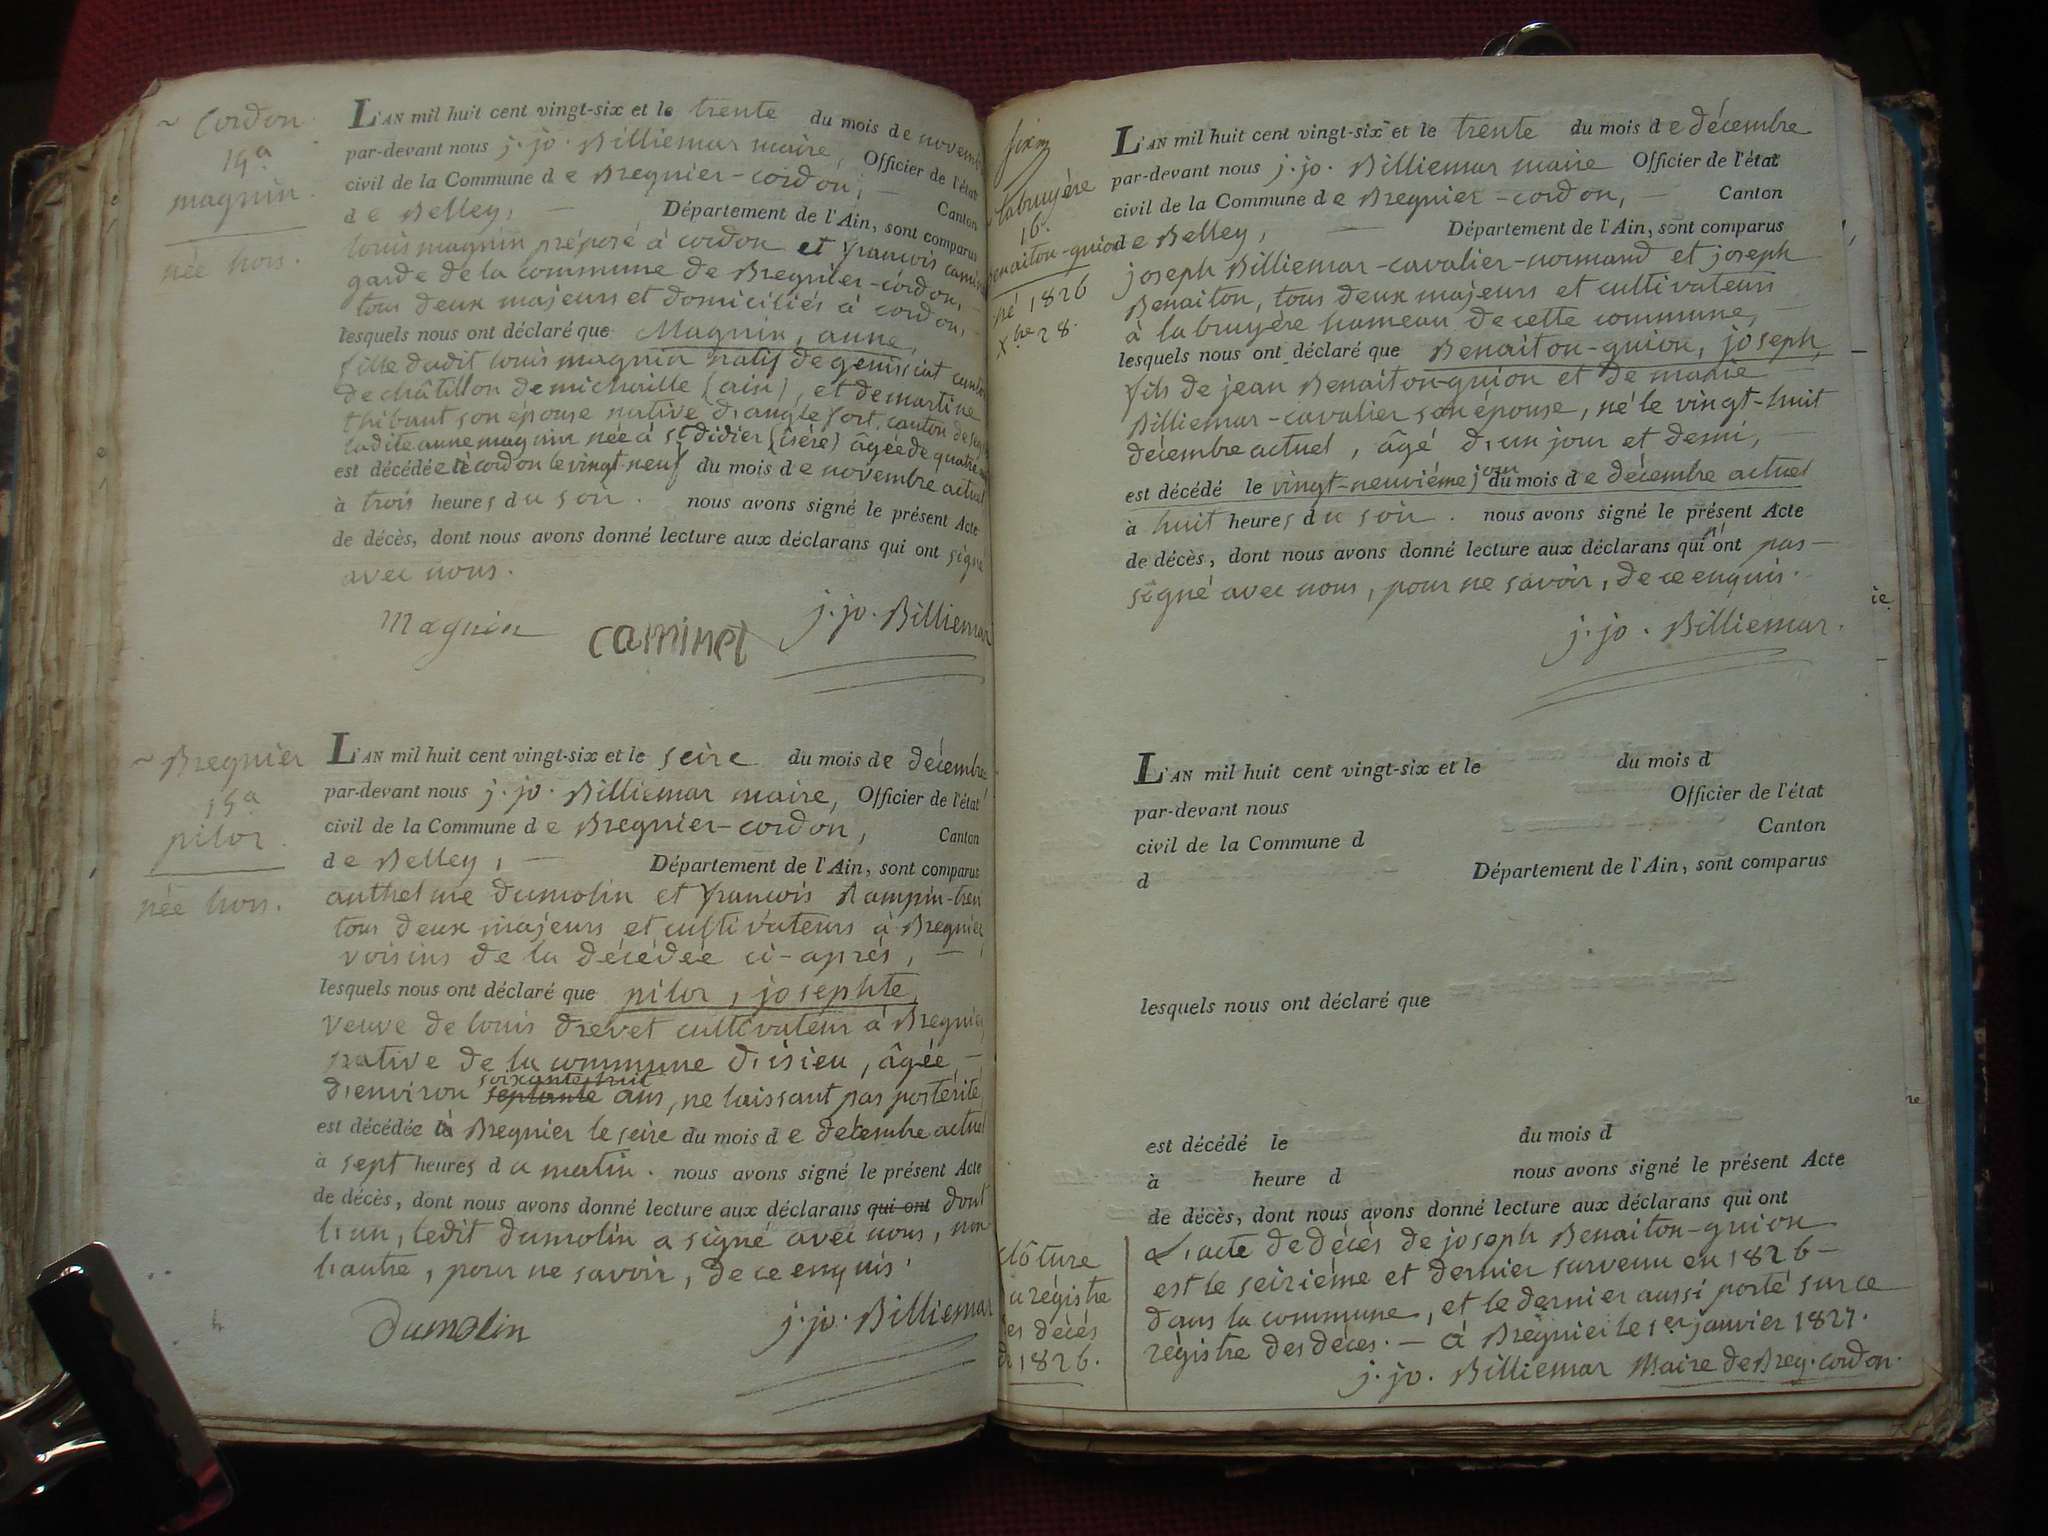 ~ Cordon
magnin.
née hors.
L'AN mil huit cent vingt-six et le trente du mois de novemb
par-devant nous j. jo. Billiemar maire, Officier de l'état
civil de la Commune de Bregnier-cordon, Canton
de Belley, Département de l'Ain, sont comparus
louis magnin préposé à cordon et françois
garde de la commune de Bregnier-cordon,
tous deux majeurs et domiciliés à cordon,
lesquels nous ont déclaré que Magnin, anne,
fille dudit louis magnin natif de genissiat
de châtillon de michaille (ain), et de martine
thibaut son épouse native d'anglefort, canton de
ladite anne magnin née à st didier (isère) âgée de quatre
est décédée à cordon le vingt-neuf du mois de novembre actuel
à trois heures du soir. nous avons signé le présent Acte
de décès, dont nous avons donné lecture aux déclarans qui ont signé
avec nous.
Magnin caminet j. jo. Billiemar
~ Bregnier
15a
pilor.
née hors.
L'AN mil huit cent vingt-six et le seize du mois de décembre
par-devant nous j. jo. Billiemar maire, Officier de l'état
civil de la Commune de Bregnier-cordon, Canton
de Belley, Département de l'Ain, sont comparus
anthelme dumolin et françois
tous deux majeurs et cultivateurs à Bregnier
voisins de la décédée ci-après,
lesquels nous ont déclaré que pilor, josephte,
veuve de louis drevet cultivateur à Bregnier
native de la commune d'isieu, âgée
soixante huit
d'environ septante ans, ne laissant pas postérité,
est décédée à Bregnier le seize du mois de décembre actuel
à sept heures du matin. nous avons signé le présent Acte
de décès, dont nous avons donné lecture aux déclarans qui ont dont
l'un, ledit dumolin a signé avec nous, non
l'autre, pour ne savoir, de ce enquis.
Dumolin j. jo. Billiemar
labruyère
16.
benaiton-guion
né 1826
xbre 28.
L'AN mil huit cent vingt-six et le trente du mois de décembre
par-devant nous j. jo. Billiemar maire Officier de l'état
civil de la Commune de Bregnier-cordon, Canton
de Belley, Département de l'Ain, sont comparus
joseph Billiemar-cavalier-normand et joseph
Benaiton, tous deux majeurs et cultivateurs
à labruyère hameau de cette commune,
lesquels nous ont déclaré que Benaiton-guion, joseph,
fils de jean Benaiton-guion et de marie
Billiemar-cavalier son épouse, né le vingt-huit
décembre actuel, âgé d'un jour et demi,
est décédé le vingt-neuvième jour du mois de décembre actuel
à huit heures du soir. nous avons signé le présent Acte
de décès, dont nous avons donné lecture aux déclarans qui n'ont pas
signé avec nous, pour ne savoir, de ce enquis.
j. jo. Billiemar.
L'AN mil huit cent vingt-six et le du mois d
par-devant nous Officier de l'état
civil de la Commune d Canton
d Département de l'Ain, sont comparus
lesquels nous ont déclaré que
est décédé le du mois d
à heure d nous avons signé le présent Acte
de décès, dont nous avons donné lecture aux déclarans qui ont
clôture
du régistre
des décès
de 1826.
L'acte de décès de joseph Benaiton-guion
est le seizième et dernier survenu en 1826
dans la commune, et le dernier aussi porté sur ce
régistre des décès. — à Bregnier le 1er janvier 1827.
j. jo. Billiemar Maire de Breg. cordon.